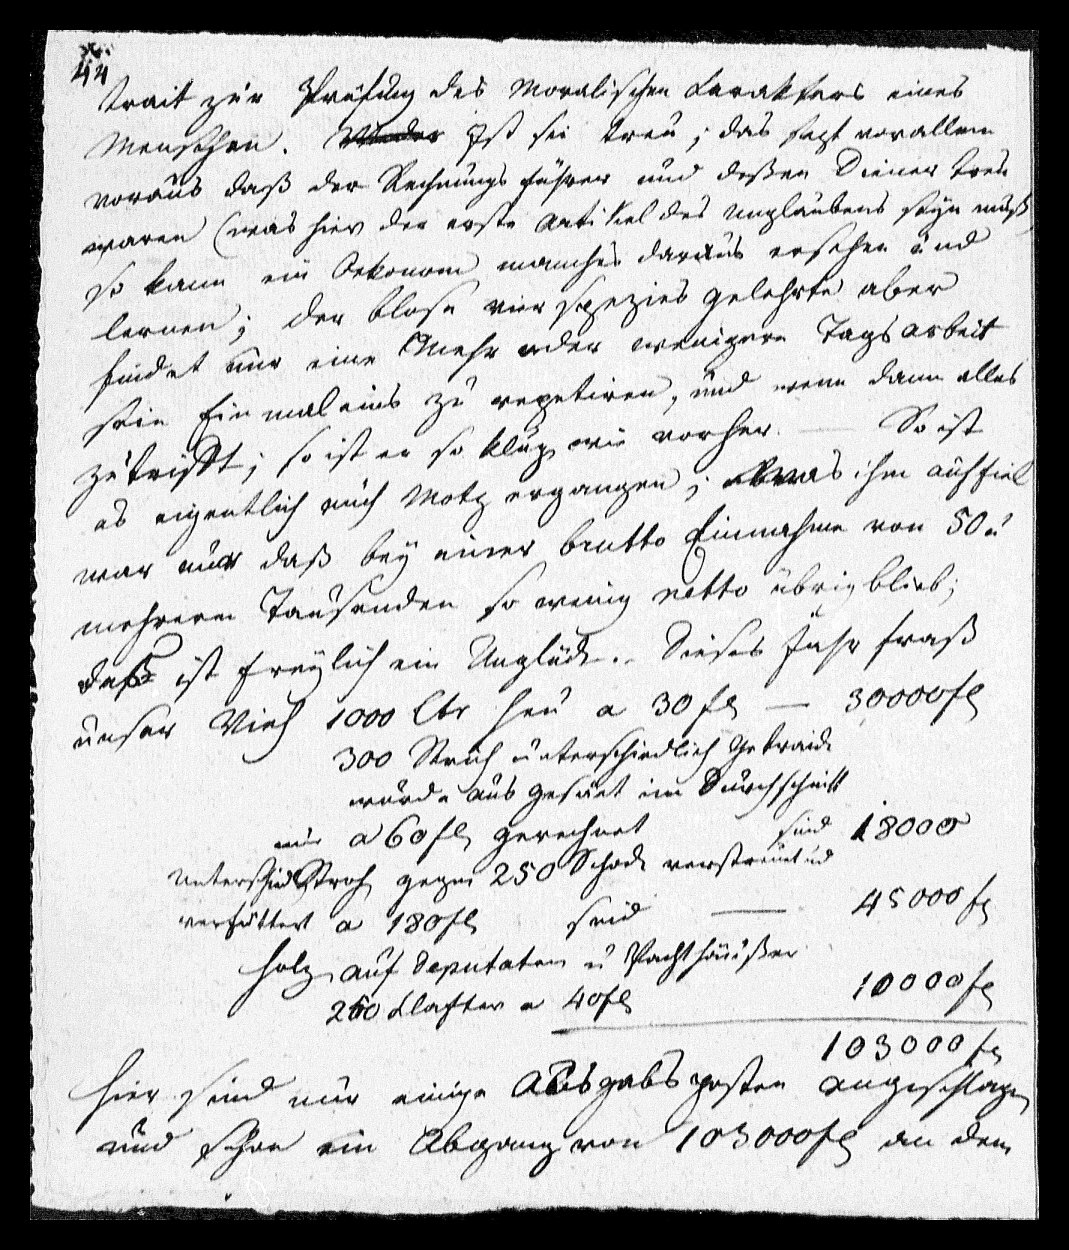 44
trait zur Prüfung des Moralischen Carakters eines
Menschen. Ist sie treu; das sezt vorallem
voraus daß der Rechnungsführer und deßen Diener treu
waren (was hier der erste Artikel des Unglaubens seyn muß)
so kann ein Oekonom manches daraus ersehen und
lernen; der blose vier spezies gelehrte aber
findet nur eine Mehr oder wenigere Tagsarbeit
sein Einmaleins zu repetiren, und wenn dann alles
zutrifft; so ist er so klug wie vorher. — So ist
es eigentlich auch Motz ergangen; was ihm auffiel
war nur daß bey einer brutto Einnahme von 50 u
mehreren Tausenden so wenig netto übrig blieb;
daß ist freylich ein Unglück. Dieses Jahr fraß
unser Vieh 1000 Ctr Heu a 30 fl — 30000 fl
300 Strich unterschiedlich Getraide
wurde ausgesäet im Durchschnitt
nur a 60 fl gerechnet sind 18000
Unterschiedl Stroh gegen 250 Schock verstreut ud
verfüttert a 180 fl sind — 45000 fl
Holz auf Deputaten u Pachthäußer
250 Clafter a 40 fl 10000 fl
103000 fl
Hier sind nur einige Ausgabsposten angeschlagen
und schon ein Abgang von 103000 fl an dem